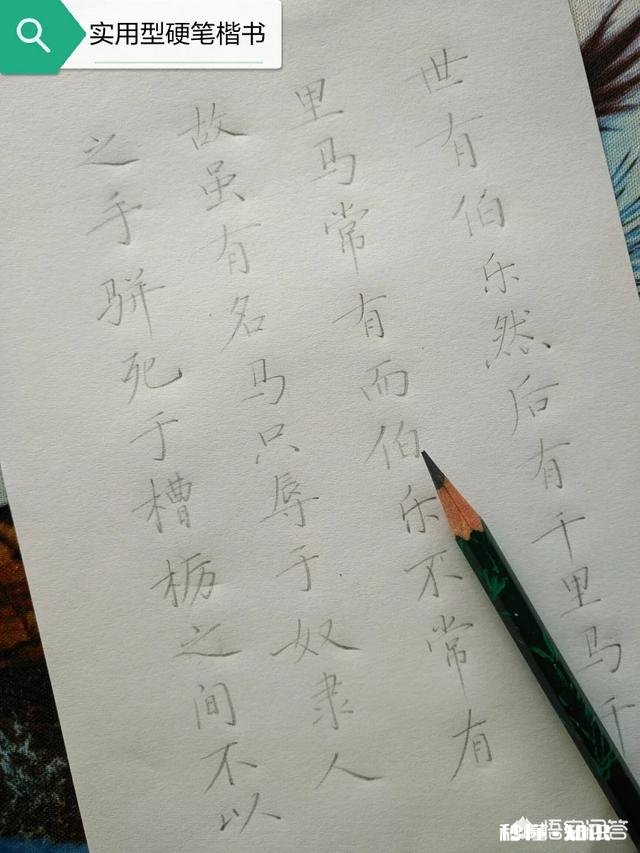 实用型硬笔楷书
世有伯乐然后有千里马千
里马常有而伯乐不常有
故虽有名马只辱于奴隶人
之手骈死于槽枥之间不以
悟空问答
秒懂·知识